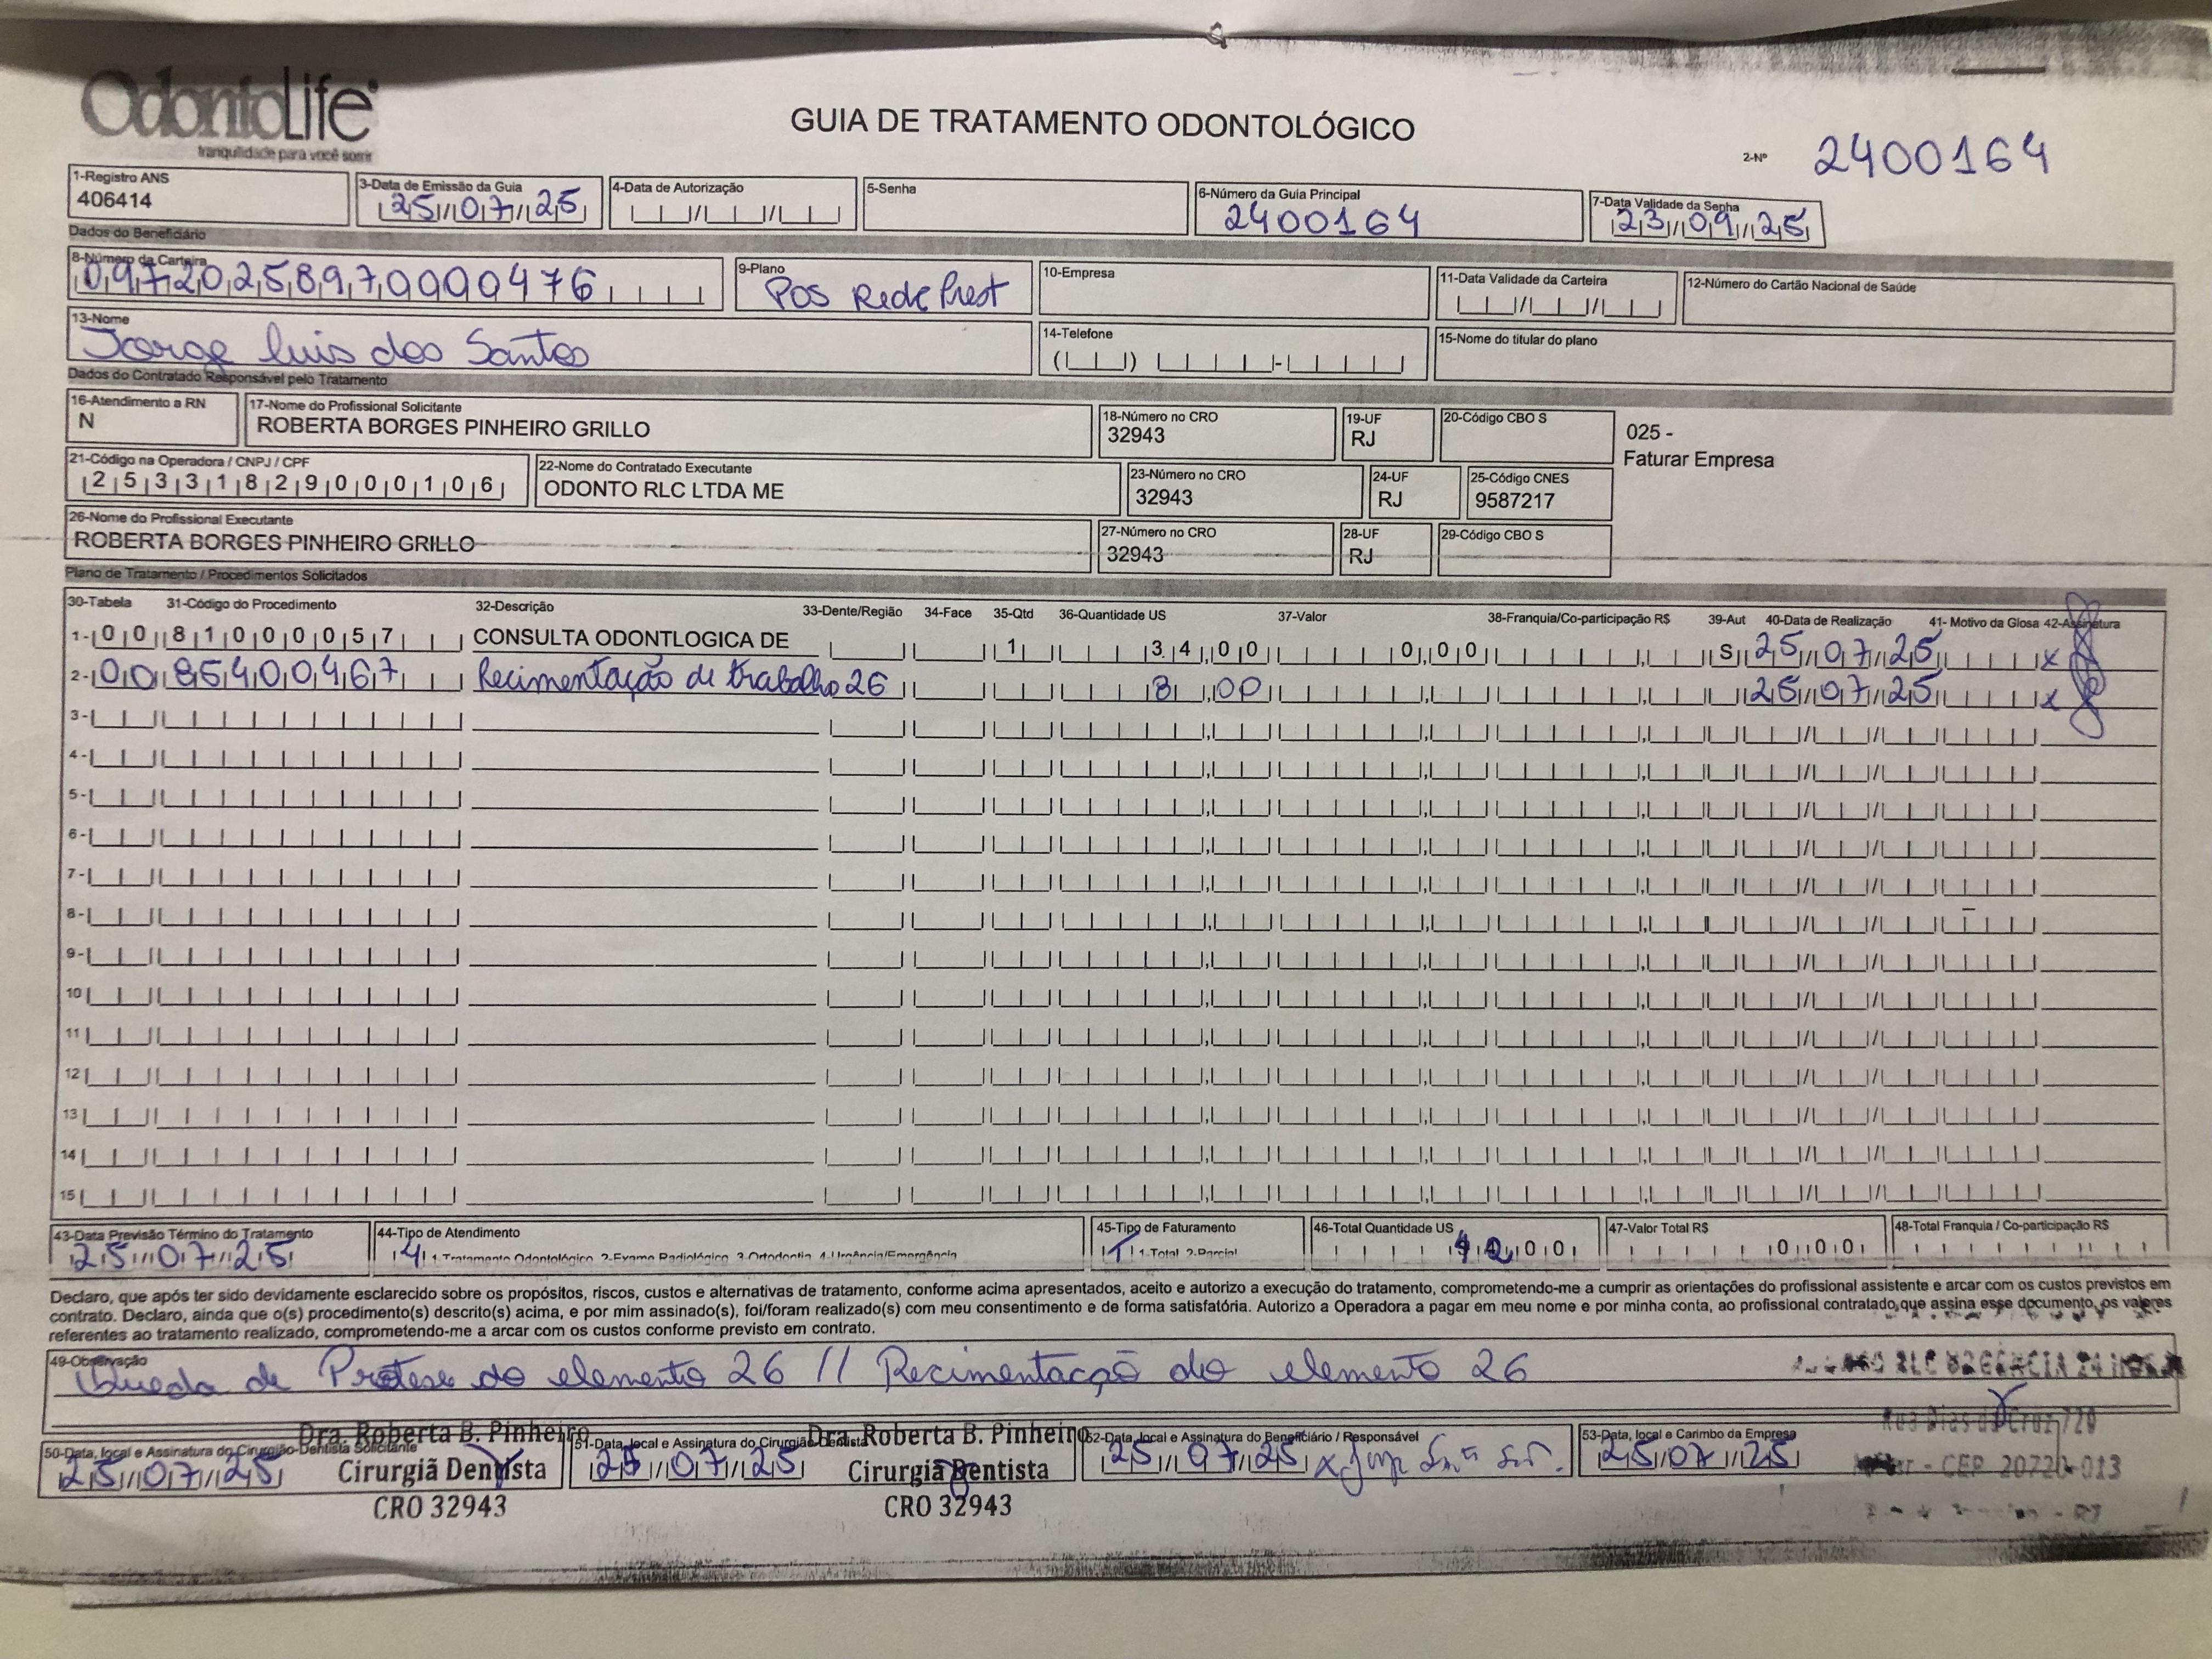 OdontoLife
tranquilidade para você sorrir
GUIA DE TRATAMENTO ODONTOLÓGICO
2-Nº 2400164
1-Registro ANS 3-Data de Emissão da Guia 4-Data de Autorização 5-Senha 6-Número da Guia Principal 7-Data Validade da Senha
406414 25/07/25 2400164 23/09/25
Dados do Beneficiário
8-Número da Carteira 9-Plano 10-Empresa 11-Data Validade da Carteira 12-Número do Cartão Nacional de Saúde
09720258970000476 POS Rede Prest
13-Nome 14-Telefone 15-Nome do titular do plano
Jorge Luis dos Santos
Dados do Contratado Responsável pelo Tratamento
16-Atendimento a RN 17-Nome do Profissional Solicitante 18-Número no CRO 19-UF 20-Código CBO S
N ROBERTA BORGES PINHEIRO GRILLO 32943 RJ 025 -
Faturar Empresa
21-Código na Operadora / CNPJ / CPF 22-Nome do Contratado Executante 23-Número no CRO 24-UF 25-Código CNES
25331829000106 ODONTO RLC LTDA ME 32943 RJ 9587217
26-Nome do Profissional Executante 27-Número no CRO 28-UF 29-Código CBO S
ROBERTA BORGES PINHEIRO GRILLO 32943 RJ
Plano de Tratamento / Procedimentos Solicitados
30-Tabela 31-Código do Procedimento 32-Descrição 33-Dente/Região 34-Face 35-Qtd 36-Quantidade US 37-Valor 38-Franquia/Co-participação R$ 39-Aut 40-Data de Realização 41- Motivo da Glosa 42-Assinatura
1- 00 81000057 CONSULTA ODONTLOGICA DE 1 34,00 0,00 S 25/07/25 x
2- 00 85400467 Recimentação de trabalho 26 8,00 25/07/25 x
3-
4-
5-
6-
7-
8-
9-
10
11
12
13
14
15
43-Data Previsão Término do Tratamento 44-Tipo de Atendimento 45-Tipo de Faturamento 46-Total Quantidade US 47-Valor Total R$ 48-Total Franquia / Co-participação R$
25/07/25 4 1-Tratamento Odontológico 2-Exame Radiológico 3-Ortodontia 4-Urgência/Emergência 1-Total 2-Parcial 42,00 0,00
Declaro, que após ter sido devidamente esclarecido sobre os propósitos, riscos, custos e alternativas de tratamento, conforme acima apresentados, aceito e autorizo a execução do tratamento, comprometendo-me a cumprir as orientações do profissional assistente e arcar com os custos previstos em
contrato. Declaro, ainda que o(s) procedimento(s) descrito(s) acima, e por mim assinado(s), foi/foram realizado(s) com meu consentimento e de forma satisfatória. Autorizo a Operadora a pagar em meu nome e por minha conta, ao profissional contratado, que assina esse documento, os valores
referentes ao tratamento realizado, comprometendo-me a arcar com os custos conforme previsto em contrato.
49-Observação
Queda de Protese do elemento 26 // Recimentação do elemento 26
RLC URGENCIA 24
Rua Dias da Cruz 720
CEP 20720-013
Dra. Roberta B. Pinheiro Dra. Roberta B. Pinheiro
50-Data, local e Assinatura do Cirurgião-Dentista Solicitante 51-Data, local e Assinatura do Cirurgião-Dentista 52-Data, local e Assinatura do Beneficiário / Responsável 53-Data, local e Carimbo da Empresa
25/07/25 Cirurgiã Dentista 25/07/25 Cirurgiã Dentista 25/07/25 x 25/07/25
CRO 32943 CRO 32943